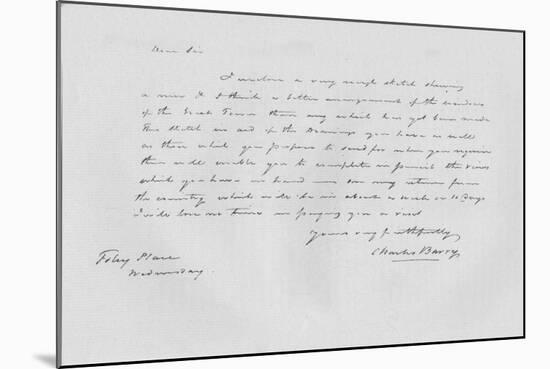 Dear Sir
I enclose a very rough sketch shewing
a new & I think a better arrangement of the windows
of the Great Tower than any which has yet been made
This sketch in aid of the drawings you have as well
as those which you propose to send for when you require
them will enable you to complete in pencil the views
which you have in hand — on my return from
the country which will be in about a week or 10 days
I will lose no time in paying you a visit
Yours very faithfully
Charles Barry
Foley Place
Wednesday.